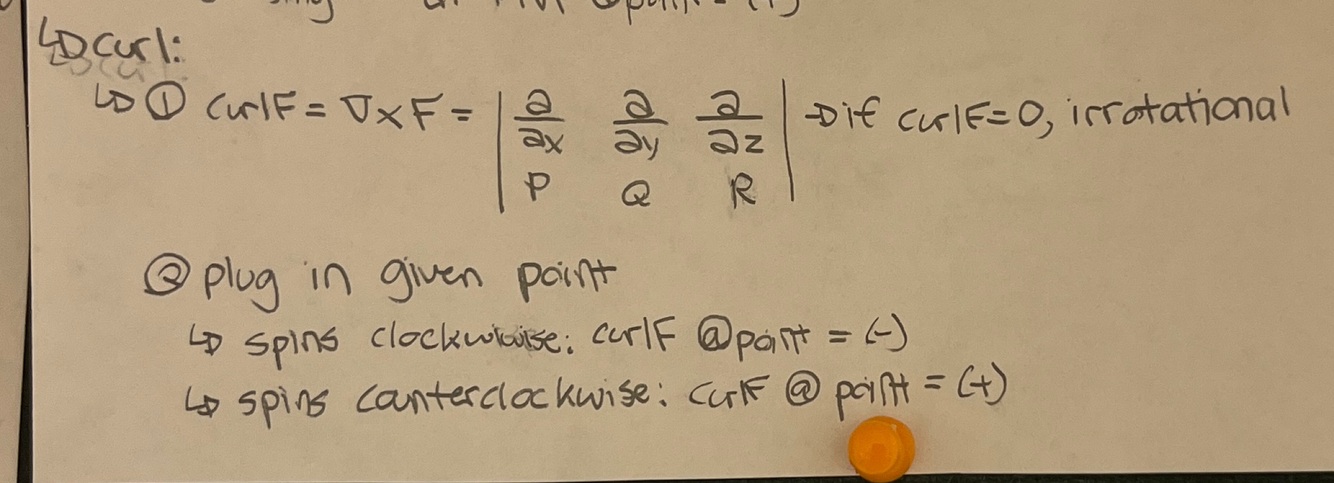 ↳ curl:
↳ ① curlF = ∇×F = | ∂/∂x ∂/∂y ∂/∂z | → if curlF=0, irrotational
P Q R
② plug in given point
↳ spins clockwise: curlF @point = (-)
↳ spins counterclockwise: curlF @ point = (+)